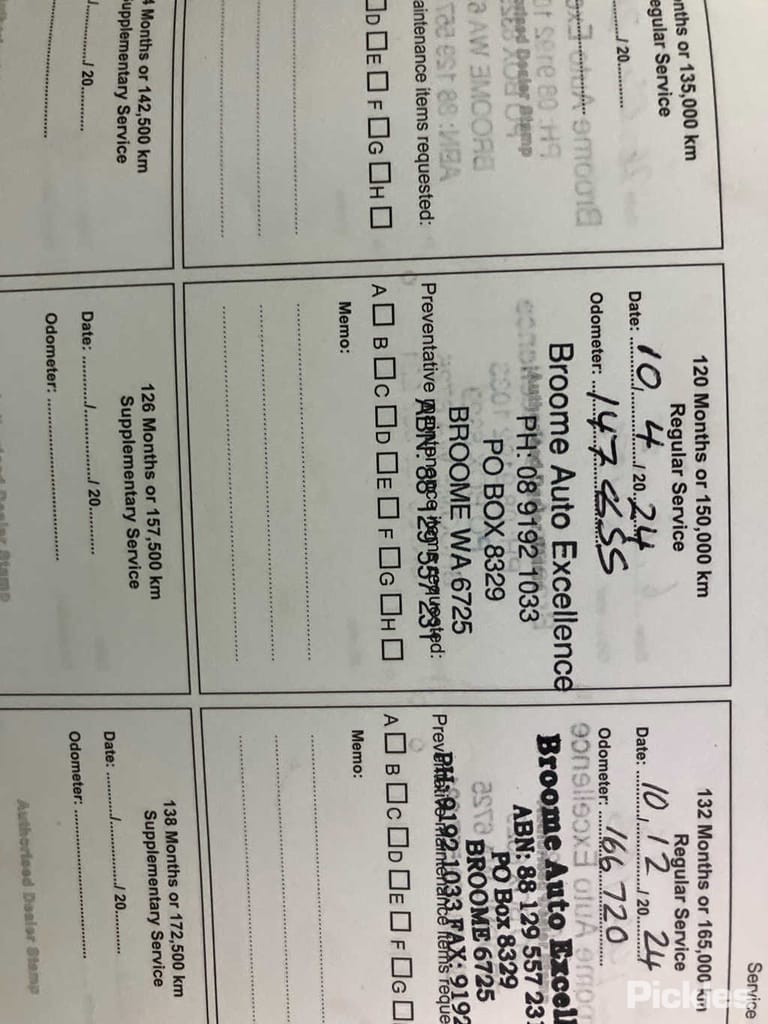 Service
nths or 135,000 km
egular Service
/ 20
aintenance items requested:
D E F G H
120 Months or 150,000 km
Regular Service
Date: 10 / 4 / 20 24
Odometer: 147
Broome Auto Excellence
PH: 08 9192 1033
PO BOX 8329
BROOME WA 6725
ABN: 88 129 557 231
Preventative maintenance items requested:
A B C D E F G H
Memo:
132 Months or 165,000 km
Regular Service
Date: 10 / 12 / 20 24
Odometer: 166 720
Broome Auto Excell
ABN: 88 129 557 231
PO Box 8329
BROOME 6725
PH: 9192 1033 FAX: 9192
Preventative maintenance items reque
A B C D E F G
Memo:
4 Months or 142,500 km
upplementary Service
/ 20
126 Months or 157,500 km
Supplementary Service
Date: / / 20
Odometer:
138 Months or 172,500 km
Supplementary Service
Date: / / 20
Odometer:
Authorised Dealer Stamp
Pickles